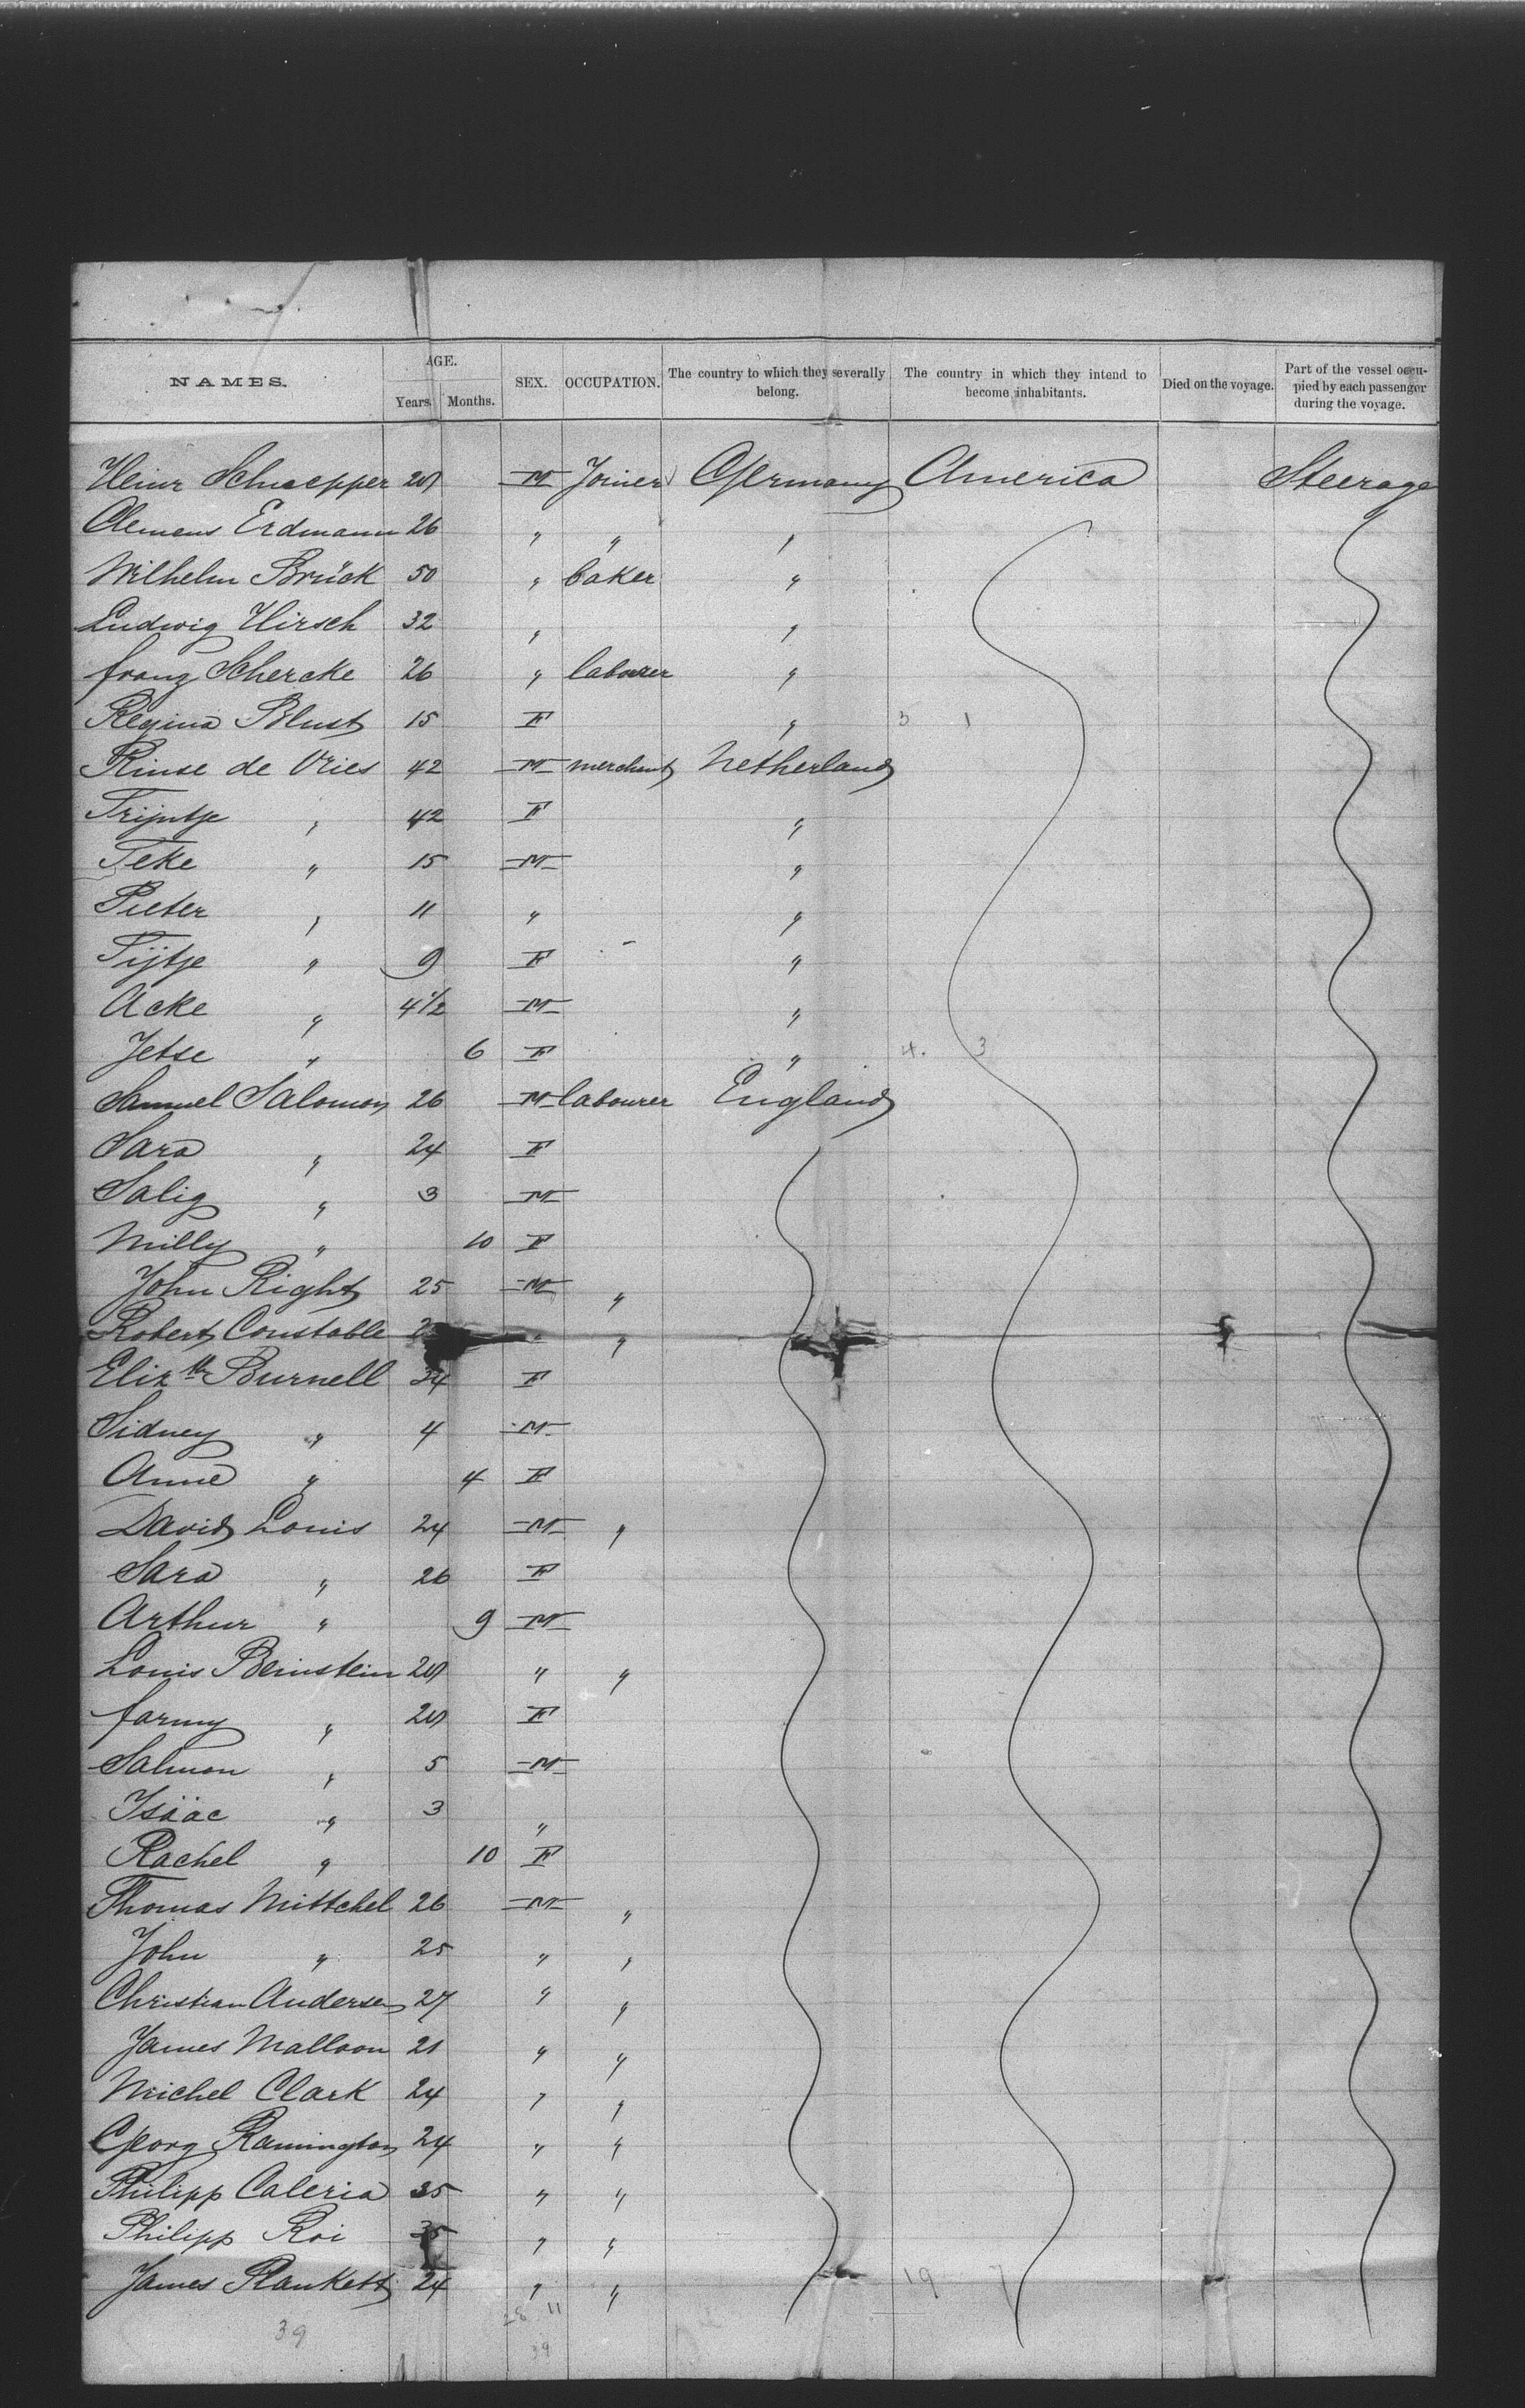 NAMES. AGE. Years. Months. SEX. OCCUPATION. The country to which they severally belong. The country in which they intend to become inhabitants. Died on the voyage. Part of the vessel occupied by each passenger during the voyage.
Heinr Schnepper M Joiner Germany America Steerage
Clemens Erdmann 26 " " "
Wilhelm Brück 50 " baker "
Ludwig Hirsch 32 " "
franz Schercke 26 " labourer "
Regina Blust 15 F " 5 1
Rinse de Vries 42 M merchant Netherland
Trijntje " 42 F "
Teke " 15 M "
Pieter " 11 " "
Tijtje " 9 F "
Acke " 4 1/2 M "
Jetse " 6 F " 4. 3
Samuel Salomon 26 M labourer England
Sara " 24 F
Salig " 3 M
Milly " 10 F
John Right 25 M "
Robert Constable " "
Elizth Burnell 34 F
Sidney " 4 M
Anne " 4 F
David Louis 24 M "
Sara " 26 F
Arthur " 9 M
Louis Beinstein " "
fanny " F
Salmon " 5 M
Isäac " 3 "
Rachel " 10 F
Thomas Mittchel 26 M "
John " 25 " "
Christian Andersen 27 " "
James Malloon 21 " "
Michel Clark 24 " "
Georg Ramington 24 " "
Philipp Caleria 35 " "
Philipp Roi 35 " "
James Plankett 24 " " 19 7
39 28 11
39